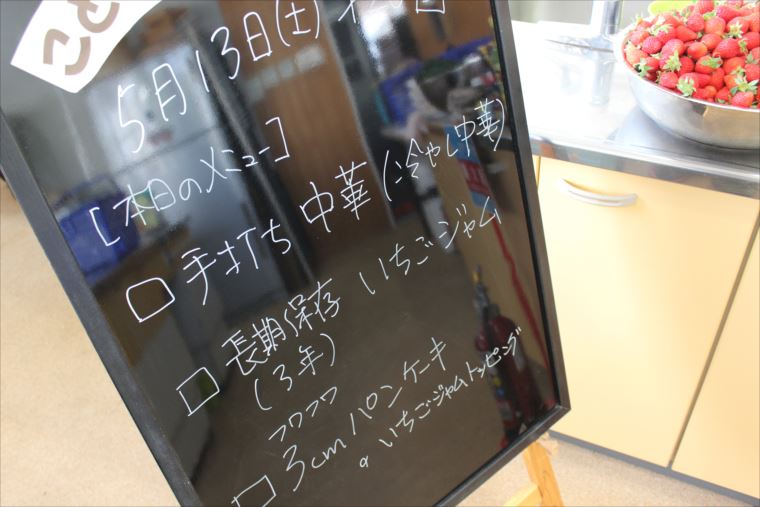 こど
5月13日(土)
[本日のメニュー]
□ 手打ち中華(冷やし中華)
□ 長期保存 いちごジャム
(3年)
フワフワ
□ 3cm パンケーキ
。いちごジャムトッピング